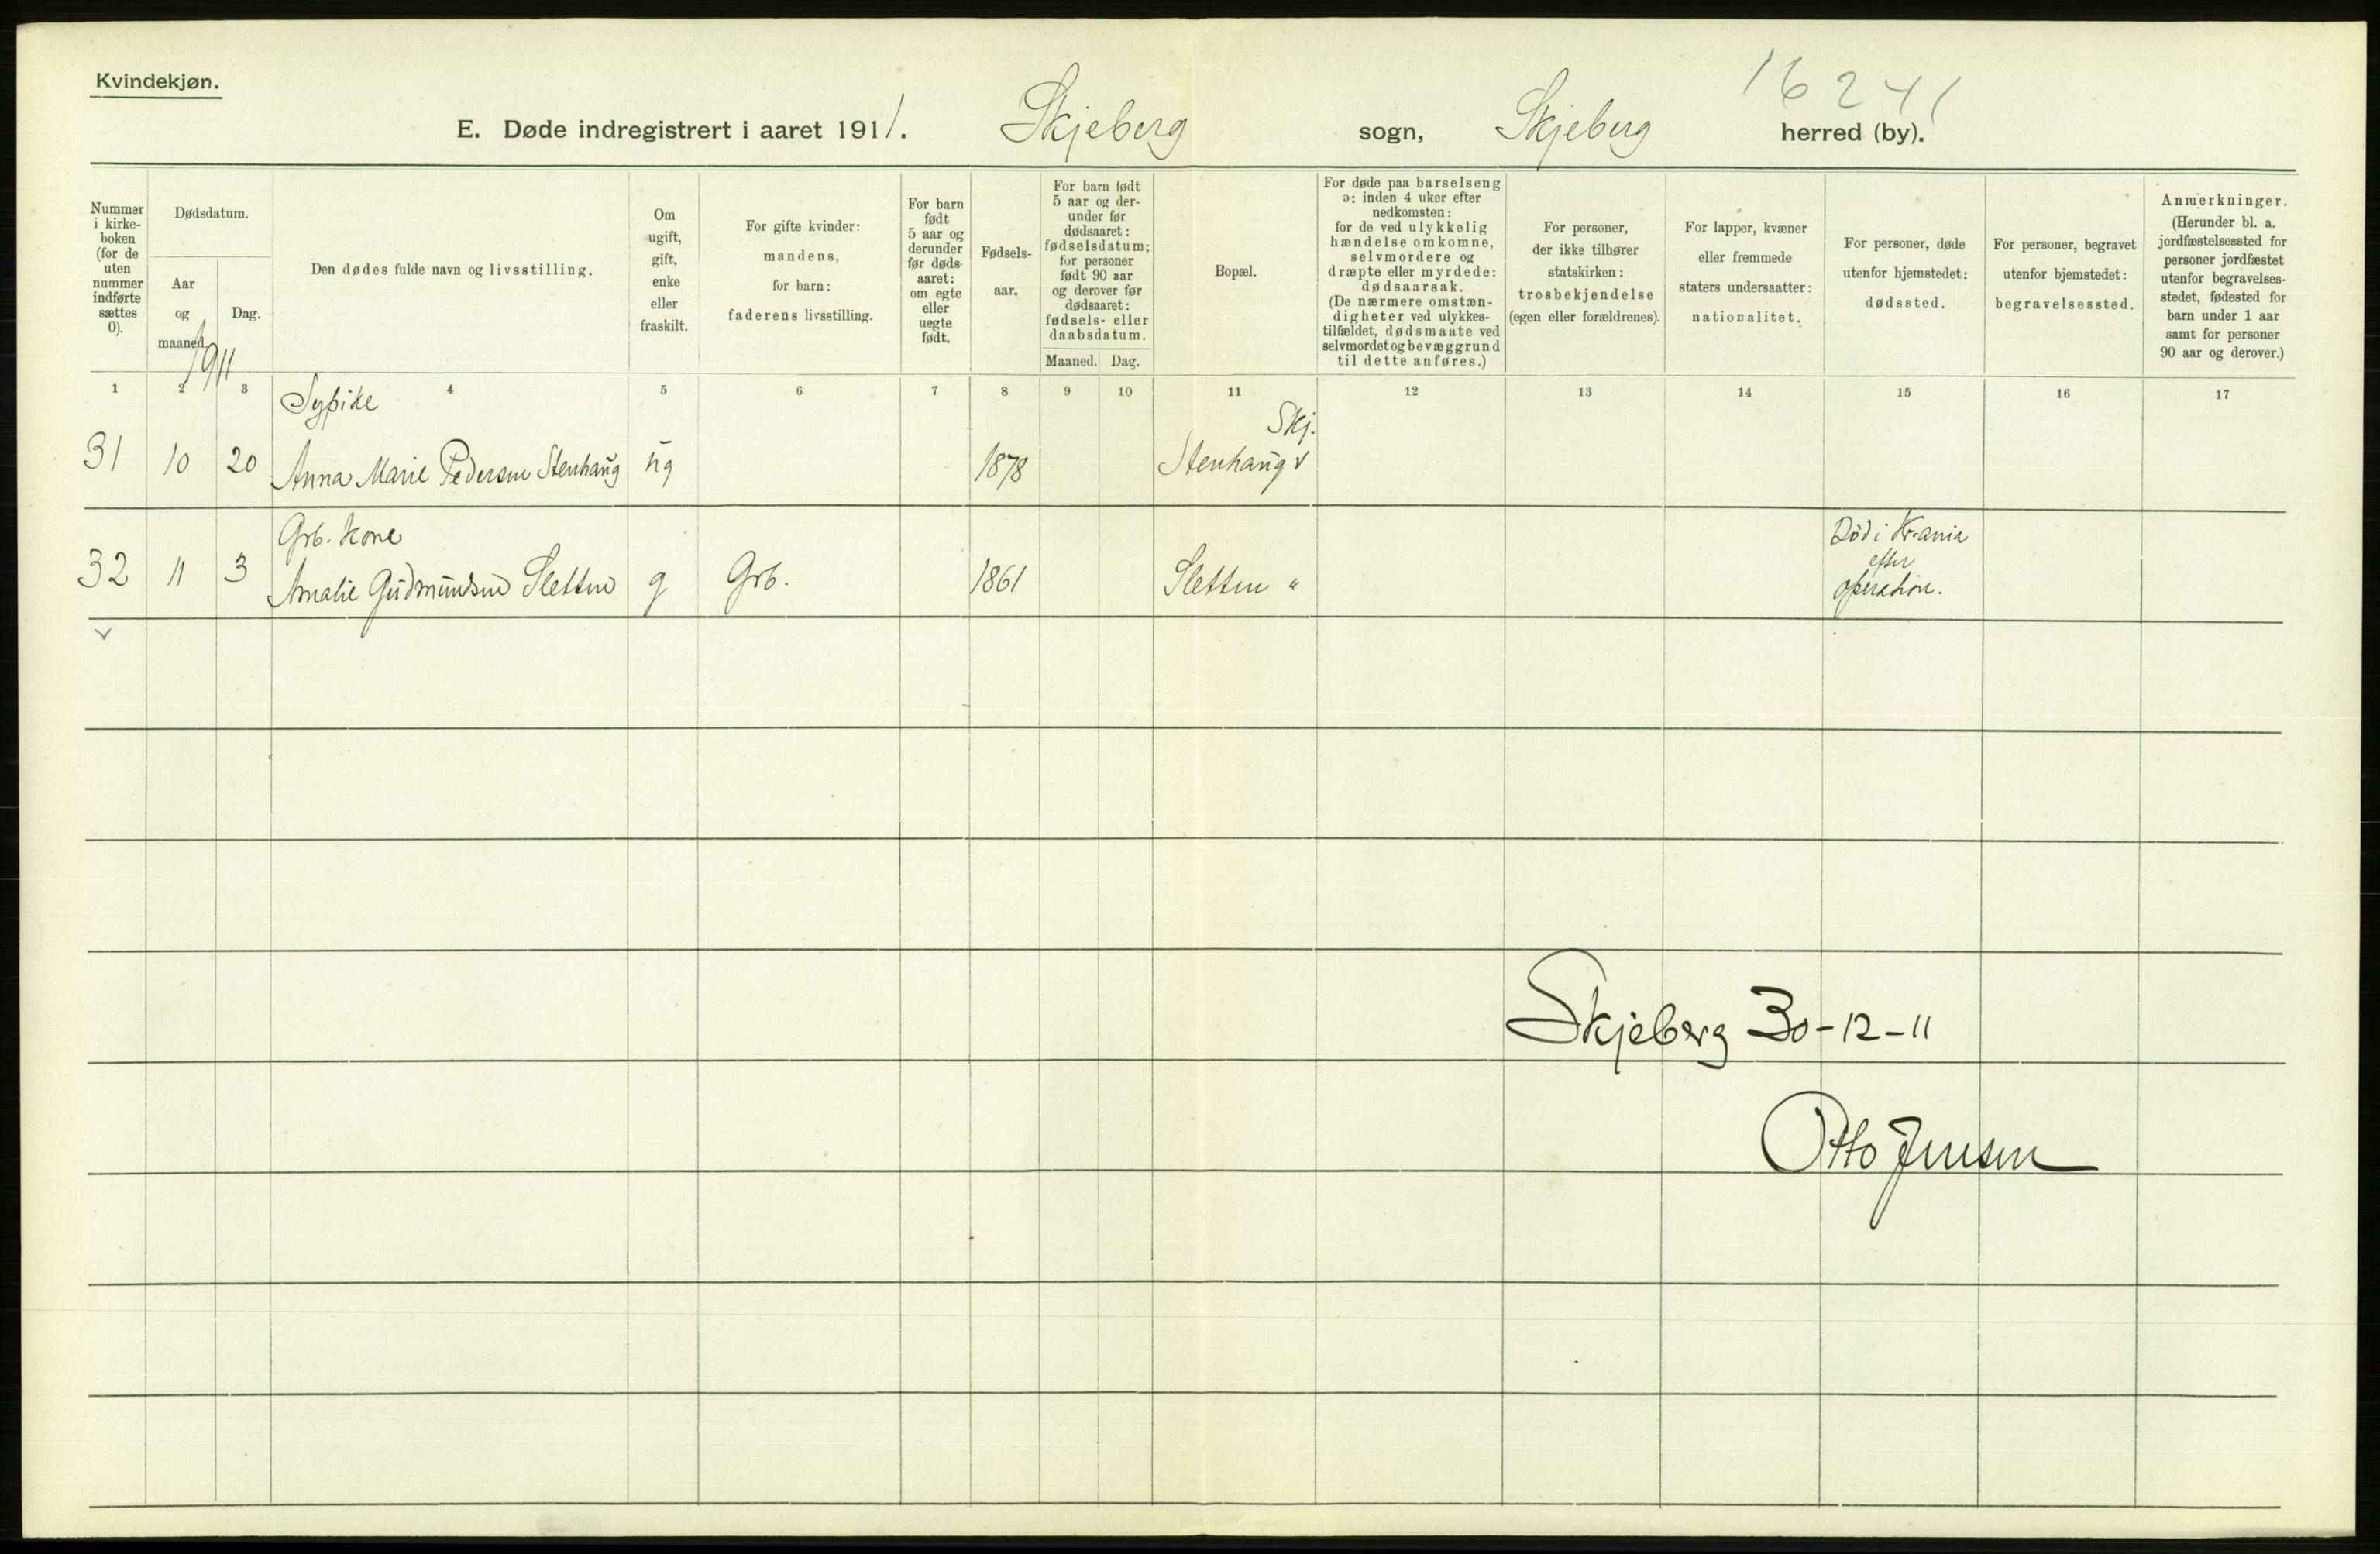 Kvindekjøn.
16241
E. Døde indregistrert i aaret 1911. Skjeberg sogn, Skjeberg herred (by).
Nummer
i kirke-
boken
(for de
uten
nummer
indførte
sættes
0).
Dødsdatum.
Aar
og
maaned.
Dag.
Den dødes fulde navn og livsstilling.
Om
ugift,
gift,
enke
eller
fraskilt.
For gifte kvinder:
mandens,
for barn:
faderens livsstilling.
For barn
født
5 aar og
derunder
før døds-
aaret:
om egte
eller
uegte
født.
Fødsels-
aar.
For barn født
5 aar og der-
under før
dødsaaret:
fødselsdatum;
for personer
født 90 aar
og derover før
dødsaaret:
fødsels- eller
daabsdatum.
Maaned. Dag.
Bopæl.
For døde paa barselseng
ɔ: inden 4 uker efter
nedkomsten:
for de ved ulykkelig
hændelse omkomne,
selvmordere og
dræpte eller myrdede:
dødsaarsak.
(De nærmere omstæn-
digheter ved ulykkes-
tilfældet, dødsmaate ved
selvmordet og bevæggrund
til dette anføres.)
For personer,
der ikke tilhører
statskirken:
trosbekjendelse
(egen eller forældrenes).
For lapper, kvæner
eller fremmede
staters undersaatter:
nationalitet.
For personer, døde
utenfor hjemstedet:
dødssted.
For personer, begravet
utenfor bjemstedet:
begravelsessted.
Anmerkninger.
(Herunder bl. a.
jordfæstelsessted for
personer jordfæstet
utenfor begravelses-
stedet, fødested for
barn under 1 aar
samt for personer
90 aar og derover.)
1911
1 2 3 4 5 6 7 8 9 10 11 12 13 14 15 16 17
Sypike
Skj.
31 10 20 Anna Marie Pedersen Stenhaug ug 1878 Stenhaug v
Grb. kone
Død i Kr-ania
efter
32 11 3 Amalie Gudmundsen Sletten g Grb. 1861 Sletten " operation.
v
Skjeberg 30-12-11
Otto Jensen